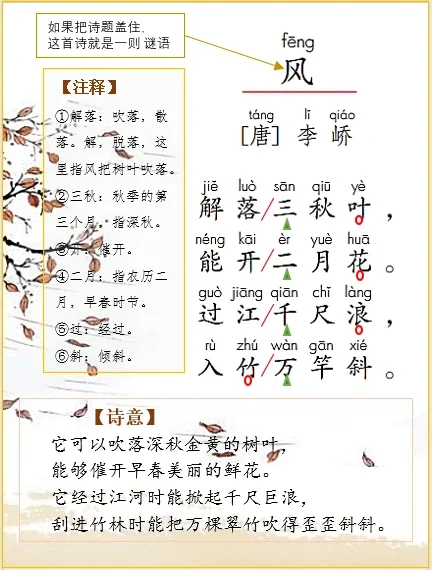 如果把诗题盖住，
这首诗就是一则 谜语
fēng
风
táng lǐ qiáo
［唐］李 峤
jiě luò sān qiū yè
解落/三秋叶，
néng kāi èr yuè huā
能开/二月花。
guò jiāng qiān chǐ làng
过江/千尺浪，
rù zhú wàn gān xié
入竹/万竿斜。
【注释】
①解落：吹落，散
落。解，脱落，这
里指风把树叶吹落。
②三秋：秋季的第
三个月，指深秋。
③开：催开。
④二月：指农历二
月，早春时节。
⑤过：经过。
⑥斜：倾斜。
【诗意】
它可以吹落深秋金黄的树叶，
能够催开早春美丽的鲜花。
它经过江河时能掀起千尺巨浪，
刮进竹林时能把万棵翠竹吹得歪歪斜斜。